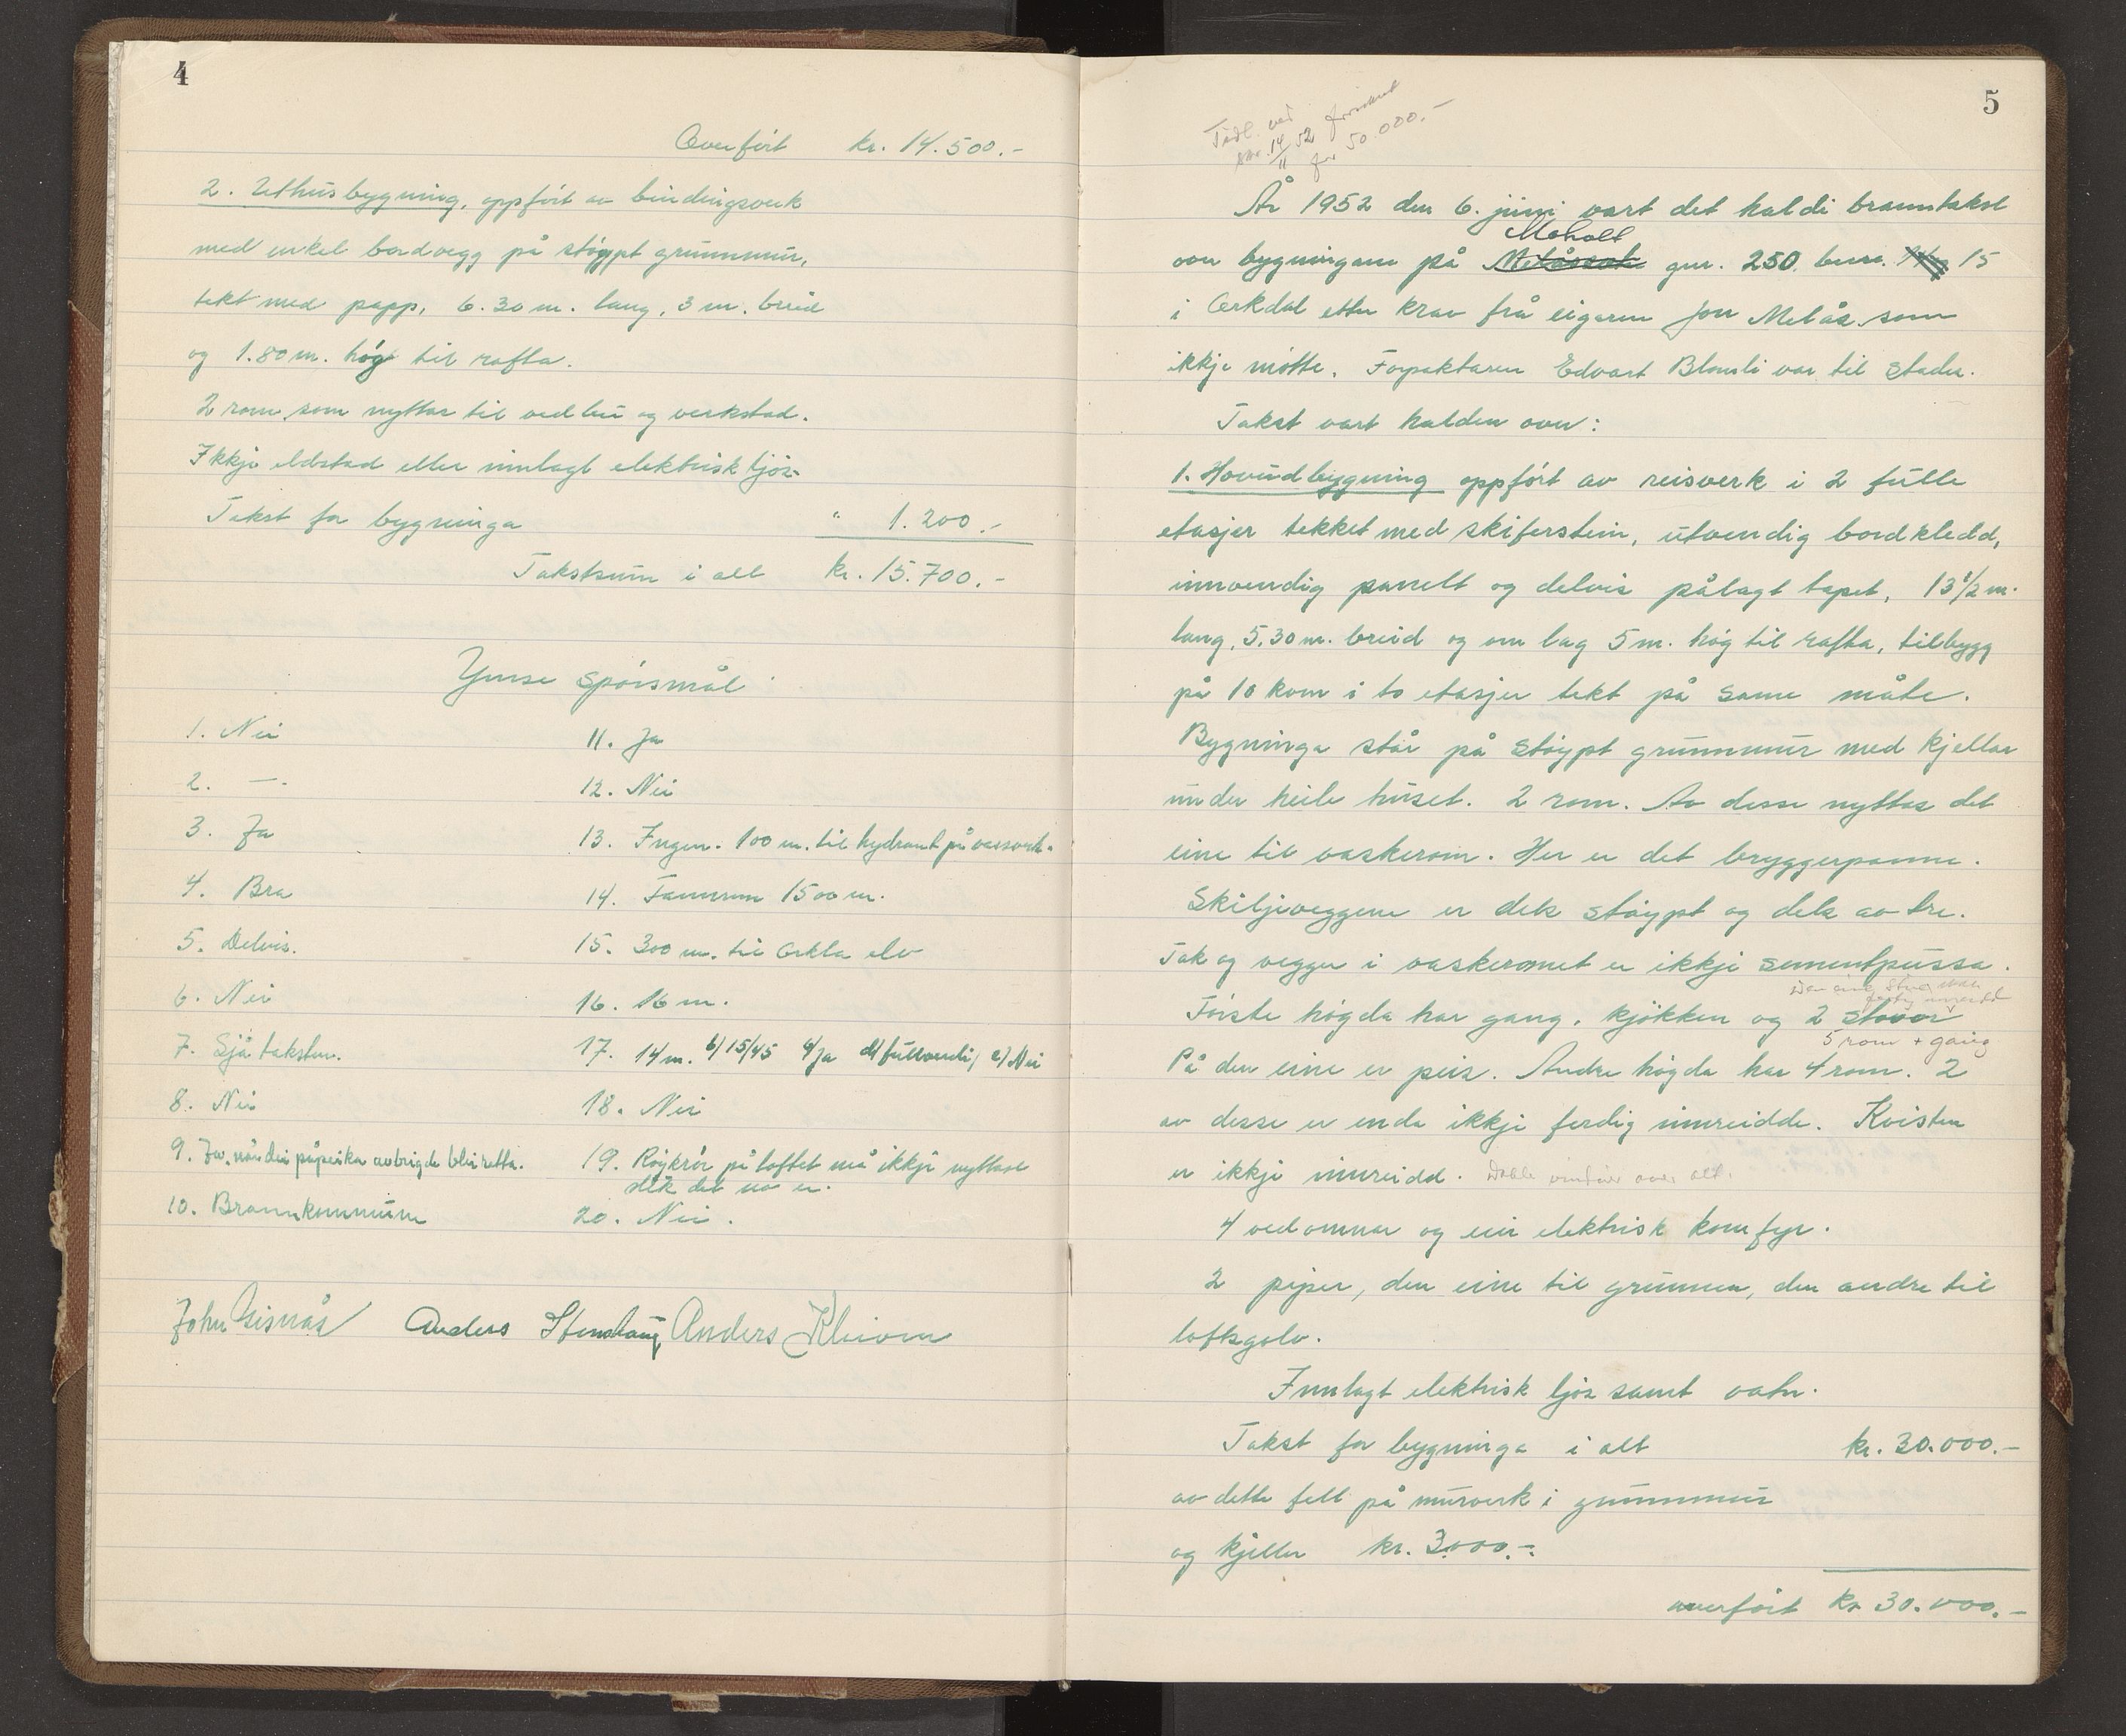 4
Overført kr. 14.500.-
2. Uthusbygning, oppført av bindingsverk
med enkel bordvegg på støypt grunnmur,
tekt med papp, 6.30 m. lang, 3 m. breid
og 1.80 m. høg til rafta.
2 rom som nyttas til vedbu og verkstad.
Ikkje eldstad eller innlagt elektrisk ljos.
Takst for bygninga " 1.200.-
Takstsum i alt kr. 15.700.-
Ymse spørsmål
1. Nei
2. —
3. Ja
4. Bra
5. Delvis.
6. Nei
7. Sjå taksten.
8. Nei
9. Ja, når dei påpeika avbrigde blir retta.
10. Brannkommune
11. Ja
12. Nei
13. Ingen. 100 m. til hydrant på vassverk.
14. Fannrem 1500 m.
15. 300 m. til Orkla elv
16. 16 m.
17. 14 m. b/15/45 c/Ja d/fullverdi/ e/Nei
18. Nei
19. Røykrør på loftet må ikkje nyttast
slik det no er.
20. Nei.
John Gisnås Anders Stenshaug Anders Kleiven
5
Tidl. ved
14/11 52 for 50.000.-
År 1952 den 6. juni vart det haldi branntakst
Moholt
over bygningane på Melåsvoll gnr. 250 bnr. 15
i Orkdal etter krav frå eigaren Jon Melås som
ikkje møtte. Forpaktaren Edvart Blomli var til stades.
Takst vart halden over:
1. Hovudbygning oppført av reisverk i 2 fulle
etasjer tekket med skiferstein, utvendig bordkledd,
innvendig panelt og delvis pålagt tapet, 13 1/2 m.
lang, 5.30 m. breid og om lag 5 m. høg til rafta, tilbygg
på 10 kvm i to etasjer tekt på same måte.
Bygninga står på støypt grunnmur med kjellar
under heile huset. 2 rom. Av desse nyttas det
eine til vaskerom. Her er det bryggerpanne.
Skiljeveggene er dels støypt og dels av tre.
Tak og vegger i vaskeromet er ikkje sementpussa.
Den eine stue ikkje
ferdig innreidd
Første høgda har gang, kjøkken og 2 stover
5 rom + gang
På den eine er peis. Andre høgda har 4 rom. 2
av desse er enda ikkje ferdig innreidde. Kvisten
er ikkje innreidd. Doble vinduer over alt.
4 vedomnar og ein elektrisk komfyr.
2 piper, den eine til grunnen, den andre til
loftsgolv.
Innlagt elektrisk ljos samt vatn.
Takst for bygninga i alt kr. 30.000.-
av dette fell på murverk i grunnmur
og kjeller kr. 3.000.-
overført kr 30.000.-